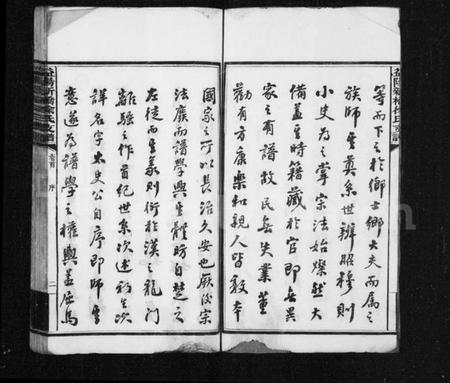 等而下之於鄉士鄉大夫而屬之
族師其奠系世辨昭穆則
小史为之掌宗法始燦然大
備蓋其時籍藏於官即無異
家之有譜故民無失業
勸有方康樂和親人皆敦本
國家之所以長治久安也厥後宗
法廢而譜學興其體昉自楚之
左徒而其義則衍於漢之龍門
離騷之作首紀世系次述初生次
詳名字太史公自序即師其
意遂為譜學之權輿蓋屈馬
益陽新橋氏支譜
卷首 序
二